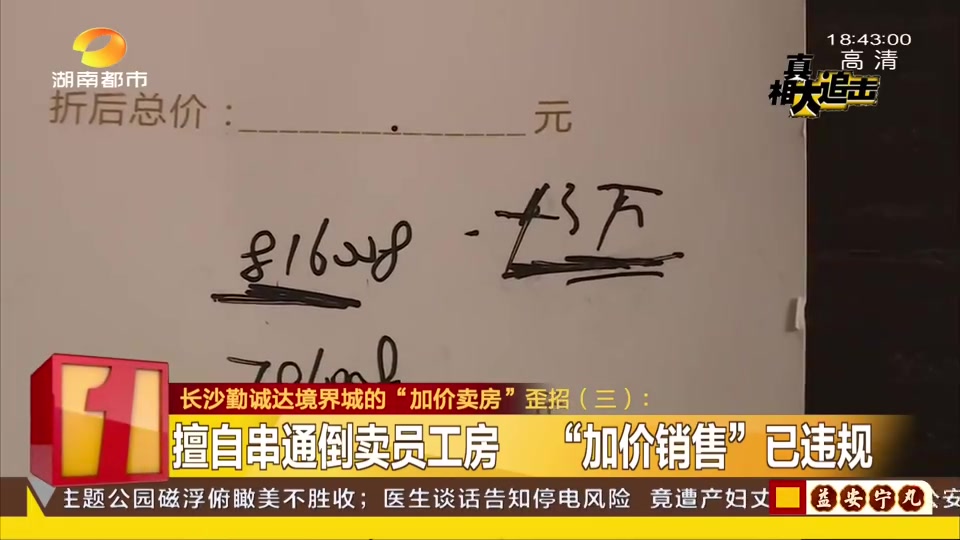 18:43:00
高清
湖南都市
真相大追击
折后总价：_______.______元
816008 - 43万
长沙勤诚达境界城的“加价卖房”歪招（三）：
擅自串通倒卖员工房 “加价销售”已违规
主题公园磁浮俯瞰美不胜收；医生谈话告知停电风险 竟遭产妇丈
益安宁丸
公安